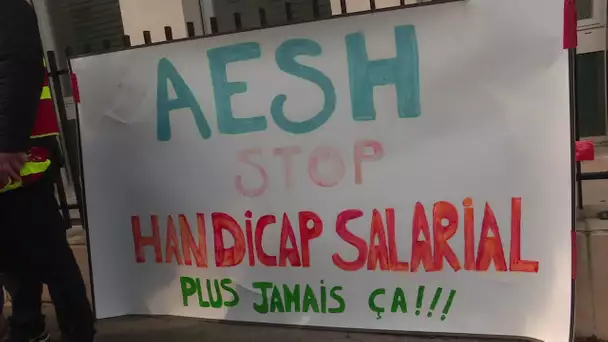 AESH
STOP
HANDiCAP SALARiAL
PLUS JAMAiS ÇA!!!